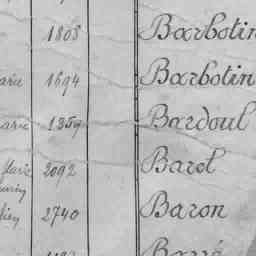 1808 Barbotin
arie 1694 Barbotin
arie 1359 Bardoul
Marie 2092 Barel
2740 Baron
Barré